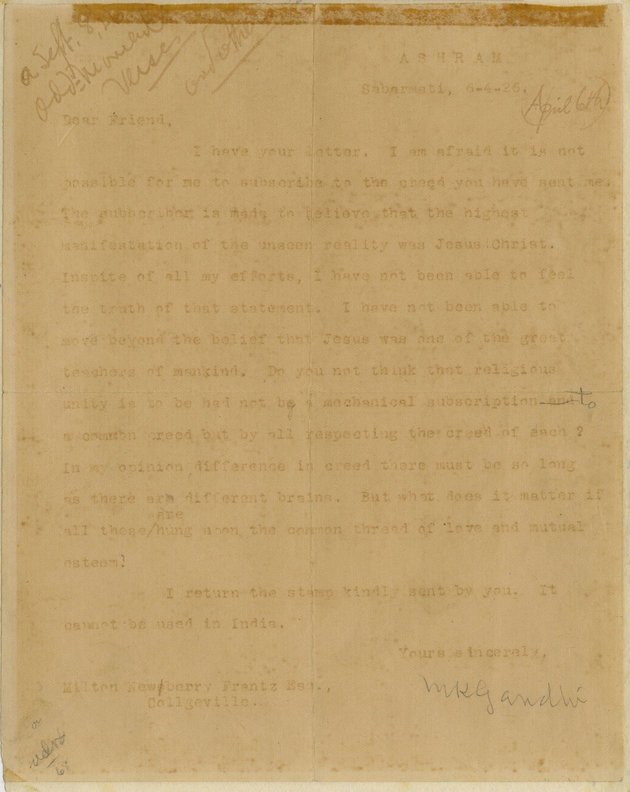 a Sept. 8,
add
verse
and other
ASHRAM
Sabarmati, 6-4-26.
(April 6th)
Dear Friend,
I have your letter. I am afraid it is not
possible for me to subscribe to the creed you have sent me.
The subscriber is made to believe that the highest
manifestation of the unseen reality was Jesus Christ.
Inspite of all my efforts, I have not been able to feel
the truth of that statement. I have not been able to
move beyond the belief that Jesus was one of the great
teachers of mankind. Do you not think that religious
unity is to be had not by a mechanical subscription and to
a common creed but by all respecting the creed of each ?
In my opinion difference in creed there must be so long
as there are different brains. But what does it matter if
are
all these/hung upon the common thread of love and mutual
esteem?
I return the stamp kindly sent by you. It
cannot be used in India.
Yours sincerely,
MKGandhi
Milton Newsberry Frantz Esq.,
Collgeville..